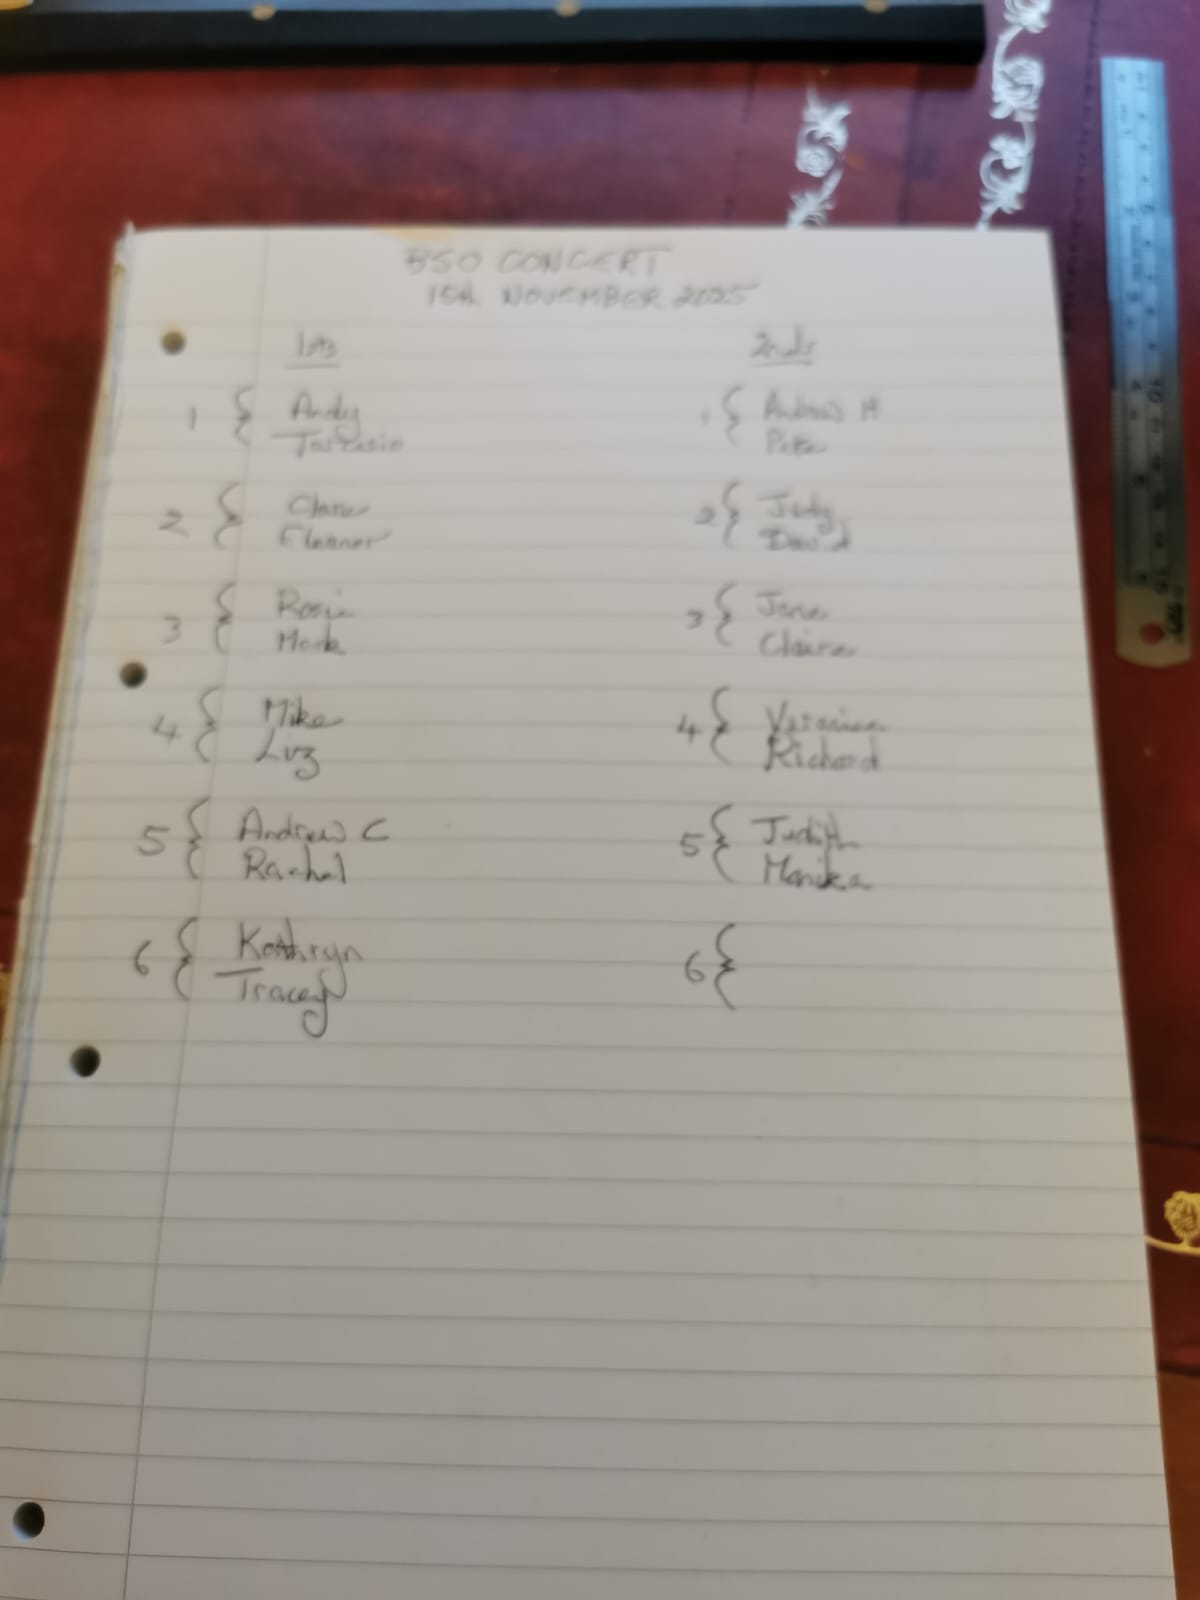 BSO CONCERT
15th NOVEMBER 2025
1sts 2nds
1 { Andy 1 { Andrew H
Peter
2 { Clare 2 { Judy
Eleanor David
3 { Rosie 3 { Jane
Mark Claire
4 { Mike 4 { Veronica
Liz Richard
5 { Andrew C 5 { Judith
Rachel Monika
6 { Kathryn 6 {
Tracey